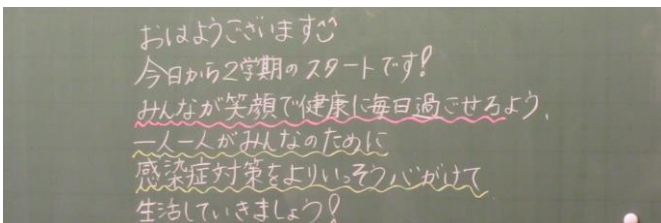 おはようございます^^
今日から2学期のスタートです!
みんなが笑顔で健康に毎日過ごせるよう、
一人一人がみんなのために
感染症対策をよりいっそう心がけて
生活していきましょう!